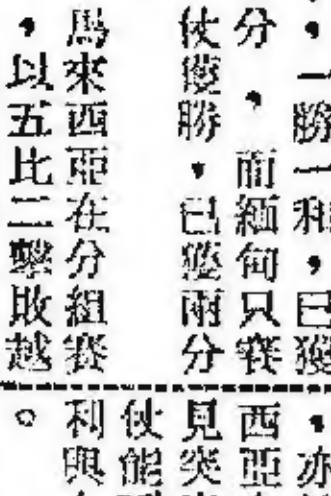 ，一勝一和，已獲
分，而緬甸只賽
仗獲勝，已獲兩分
馬來西亞在分組賽
，以五比二擊敗越
，亦
西亞
見突
仗能
利興
。